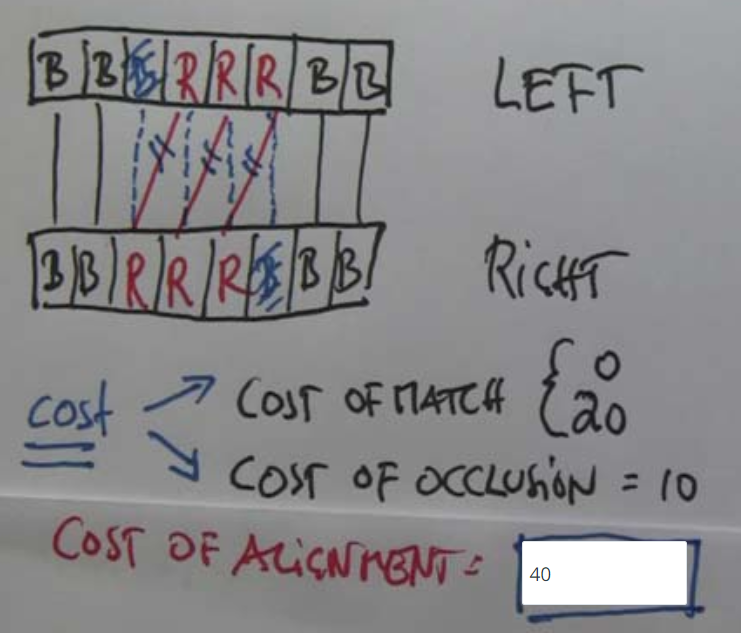 B B B R R R B B
LEFT
B B R R R B B B
RiGHT
cost
COST OF MATCH { 0
20
COST OF OCCLUSiON = 10
COST OF ALiGNMENT = 40